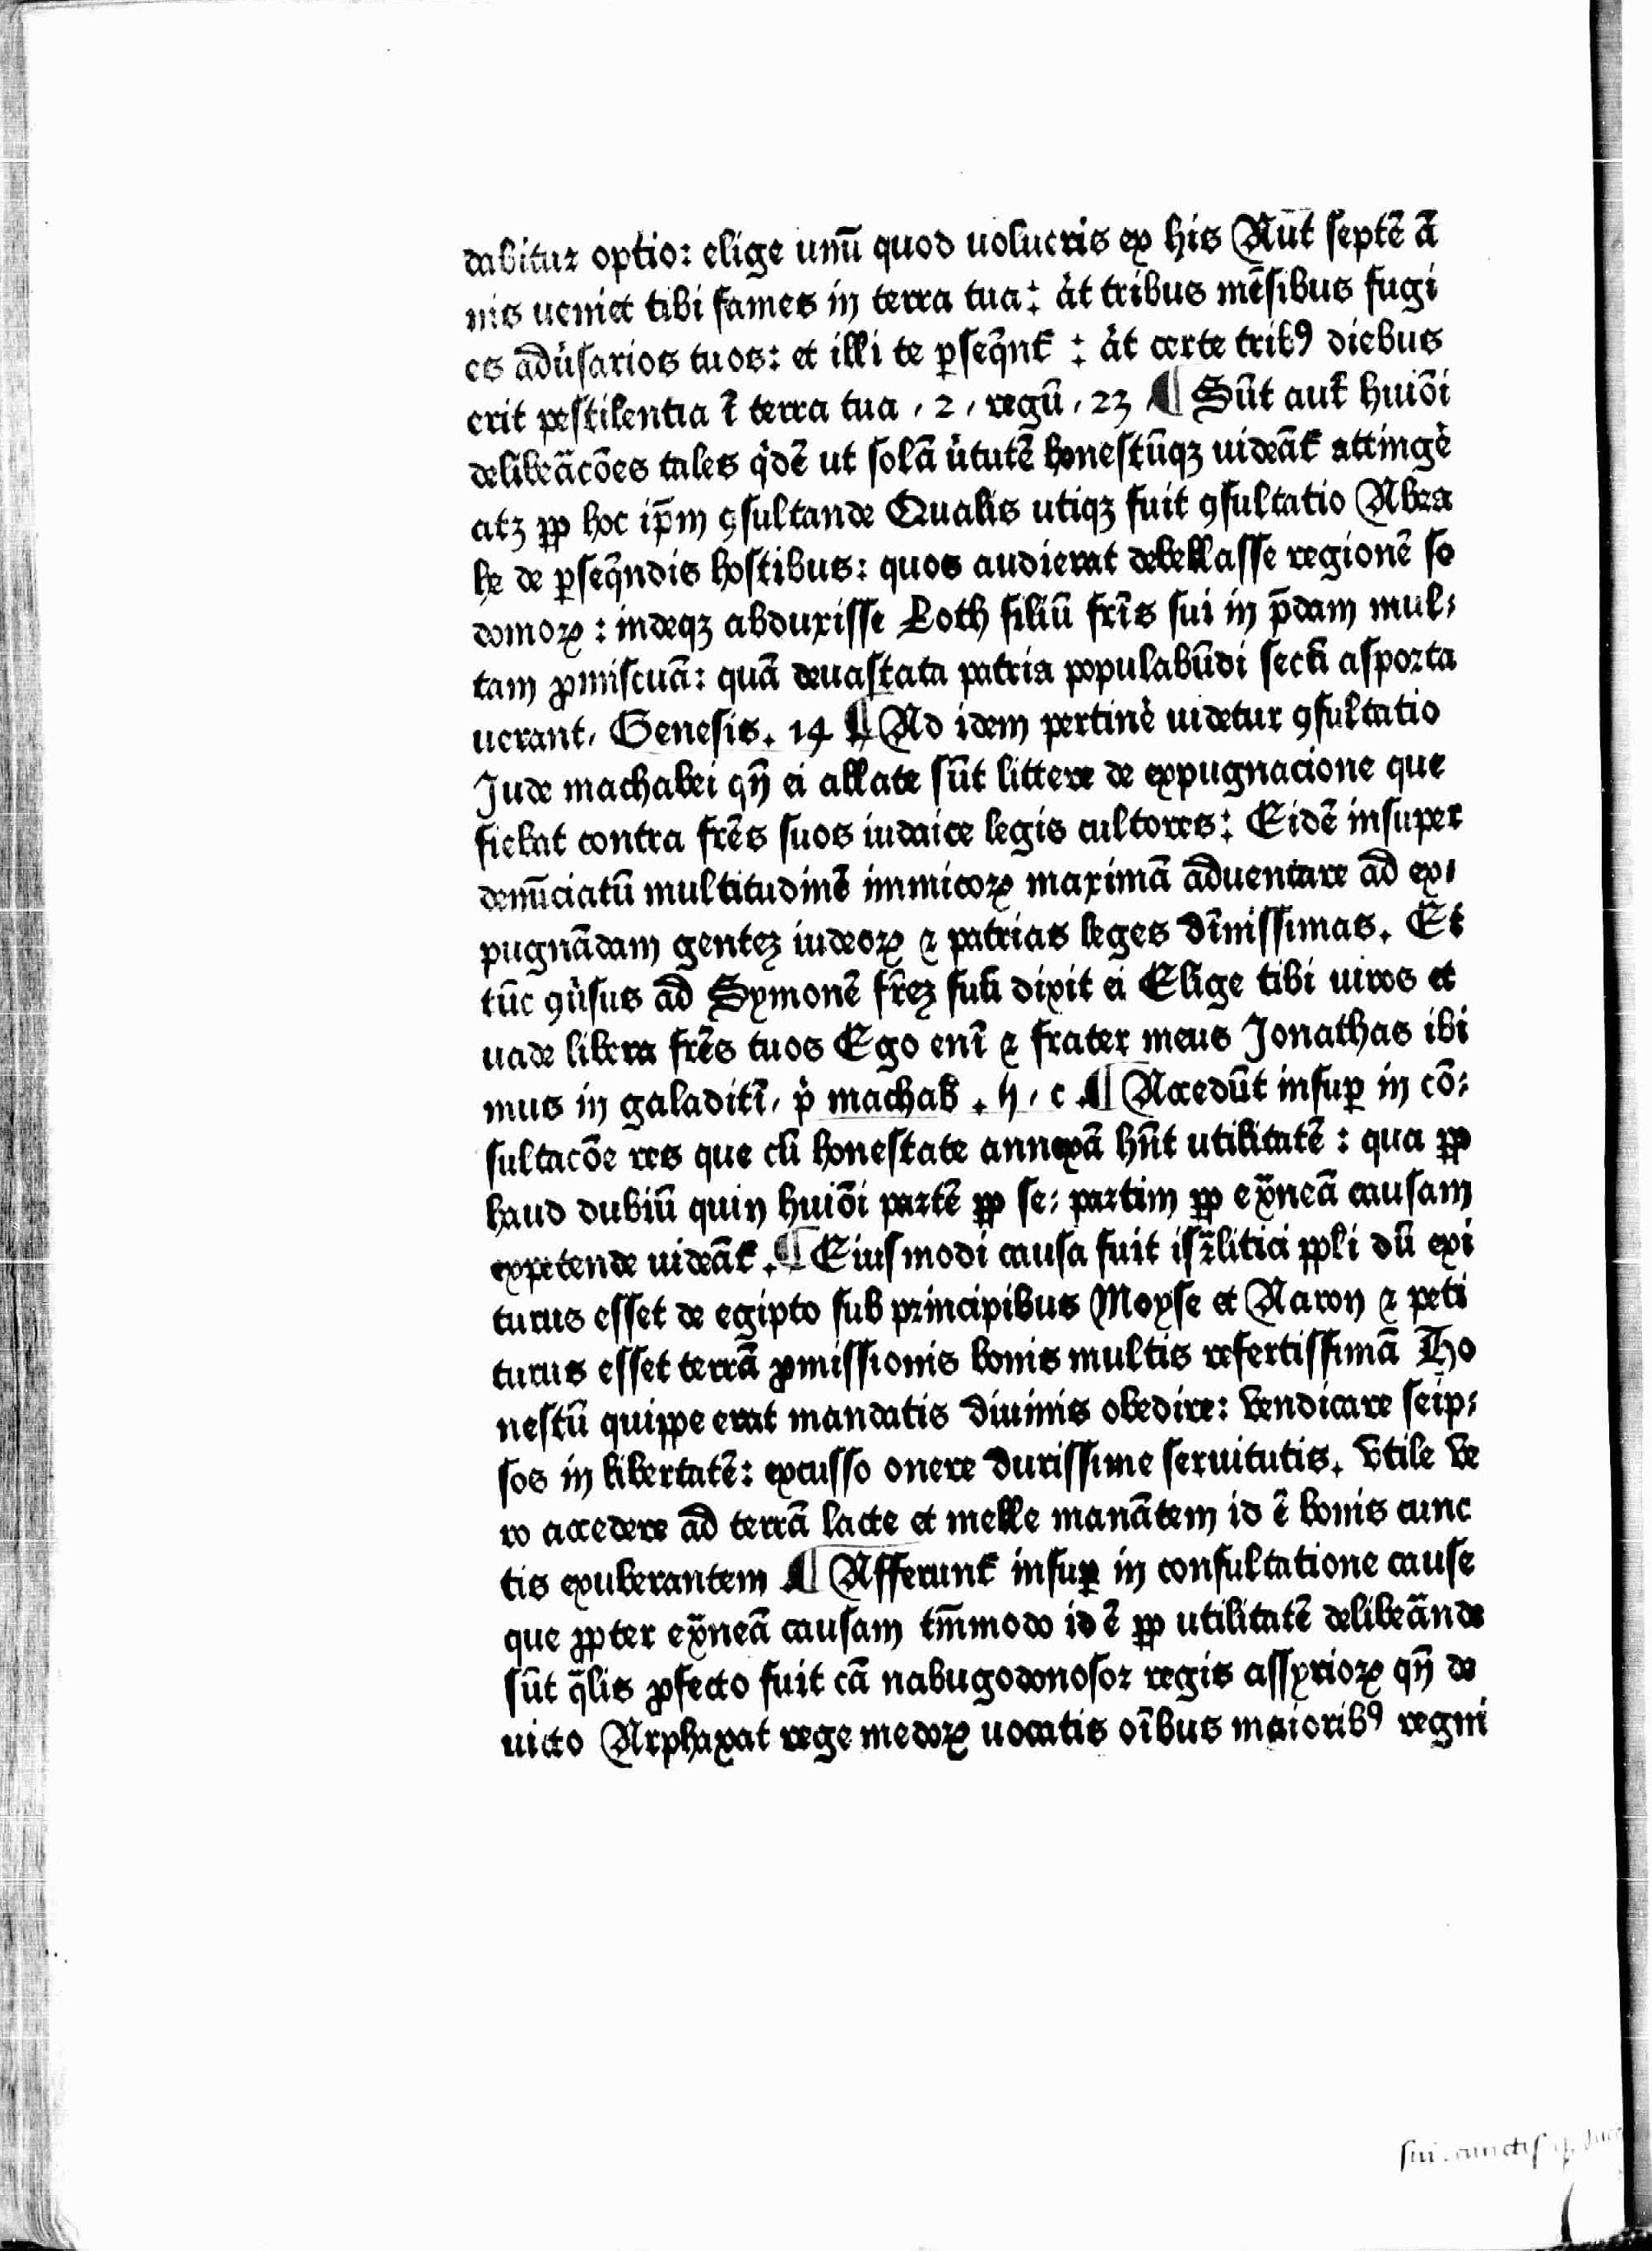 dabitur optio: elige unū quod uolueris ex his Aut septē ā
nis ueniet tibi fames in terra tua: aut tribus mēsibus fugi
es aduṡarios tuos: et illi te ꝑseq̄nt᷑ : aut certe tribꝰ diebus
erit pestilentia ī terra tua , 2 , regū , 23 ¶ Sūt aut᷑ huiōi
delibeãcōes tales q̇dē ut solā u̇tutē honestūqꝫ uideāt᷑ attinge᷑
atꝫ ꝓp hoc ip̄m ꝯsultande Qualis utiqꝫ fuit ꝯsultatio Abra
he de ꝑseq̄ndis hostibus: quos audierat debellasse regionē so
domoꝝ : indeqꝫ abduxisse Loth filiū fr̄is sui in p̄dam mul⸗
tam ꝓmiscuā: quā deuastata patria populabūdi secū asporta
uerant, Genesis . 14 ¶ Ad idem pertine᷑ uidetur ꝯsultatio
Jude machabei qn̄ ei allate sūt littere de expugnacione que
fiebat contra fr̄es suos iudaice legis cultores: Eidē insuper
denūciatū multitudinē inimicoꝝ maximā aduentare ad ex⸗
pugnādam genteꝫ iudeoꝝ ⁊ patrias leges dīnissimas . Et
tūc ꝯu̇sus ad Symonē fr̄eꝫ suū dixit ei Elige tibi uiros et
uade libera fr̄es tuos Ego enī ⁊ frater meus Jonathas ibi
mus in galaditī, ṗ machab . h , c . ¶ Accedūt insuꝑ in cō⸗
sultacōe res que cū honestate annexā hn̄t utilitatē : qua ꝓp
haud dubiū quin huiōi partē ꝓp se: partim ꝓp ex̄neā causam
expetende uideāt᷑ . ¶ Eiusmodi causa fuit isr̄litici ppli dū exi
turus esset de egipto sub principibus Moyse et Aaron ⁊ peti
turus esset terrā ꝓmissionis bonis multis refertissimā Ho
nestū quippe erat mandatis diuinis obedire: vendicare seip⸗
sos in libertatē: excusso onere durissime seruitutis . vtile ve
ro accedere ad terrā lacte et melle manātem id ē bonis cunc
tis exuberantem ¶ Afferunt᷑ insuꝑ in consultatione cause
que ꝓpter ex̄neā causam tm̄modo id ē ꝓp utilitatē delibeãnde
sūt q̄lis ꝓfecto fuit cā nabugodonosor regis assyrioꝝ qn̄ de
uicto Arphaxat rege medoꝝ uocatis oībus maioribꝰ regni
sui . cunctisqꝫ